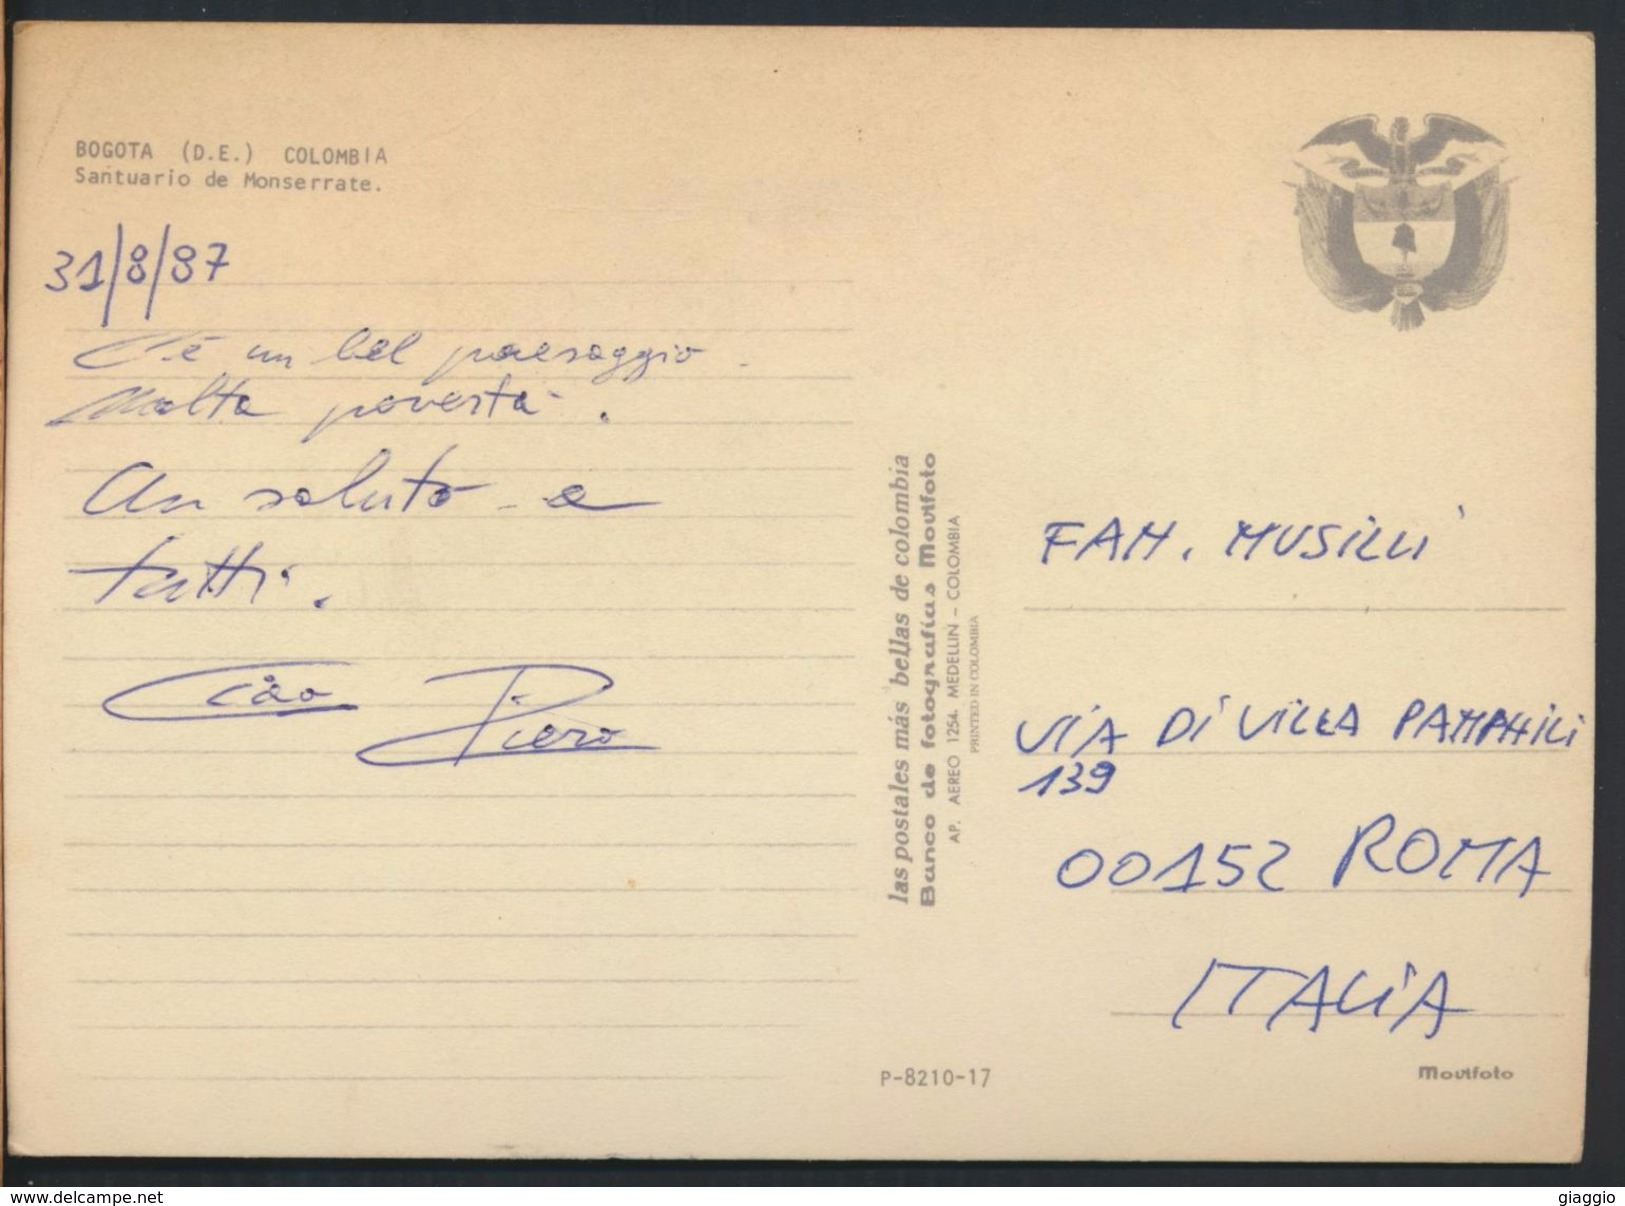 BOGOTA (D.E.) COLOMBIA
Santuario de Monserrate.
31/8/87
C'è un bel paesaggio.
Molta povertà.
Un saluto a
tutti.
Ciao Piero
las postales más bellas de colombia
Banco de fotografías Movifoto
AP. AEREO 1254. MEDELLIN - COLOMBIA
PRINTED IN COLOMBIA
FAM. MUSILLI
VIA DI VILLA PAMPHILI
139
00152 ROMA
ITALIA
P-8210-17
Movifoto
www.delcampe.net
giaggio